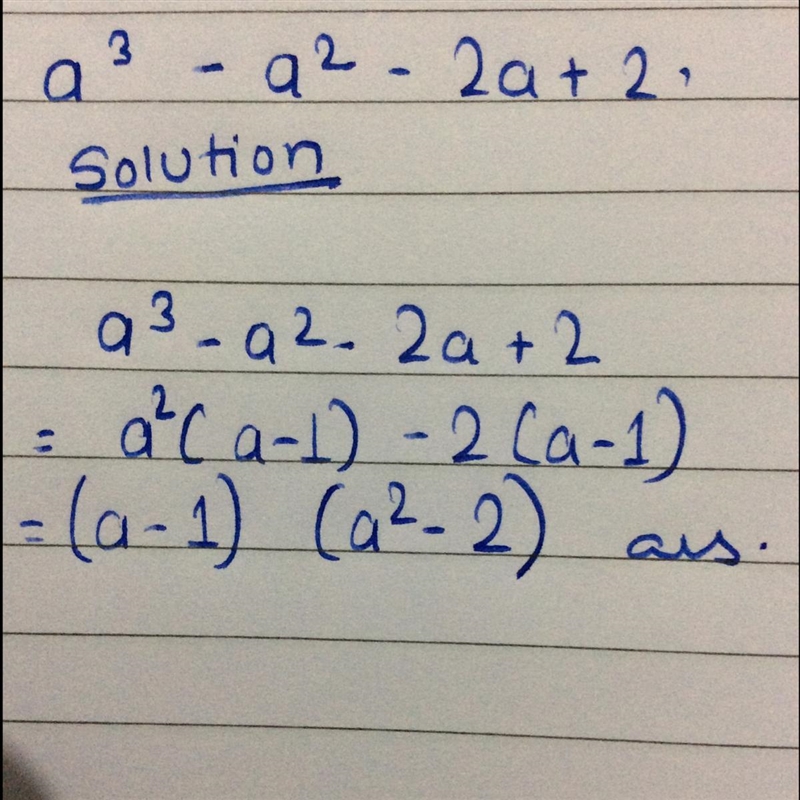 a³ - a² - 2a + 2.
Solution
a³ - a² - 2a + 2
= a²(a-1) - 2(a-1)
= (a-1) (a²-2) ans.